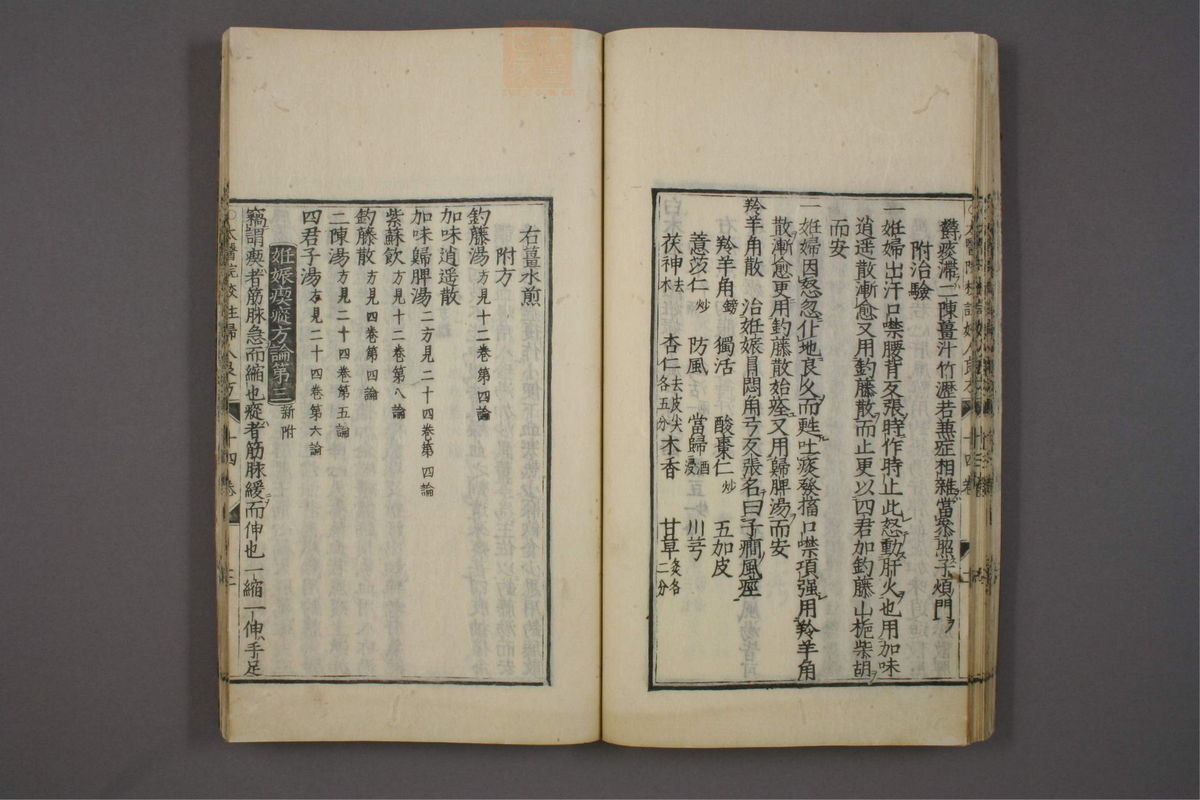 欝痰滯二陳薑汁竹瀝若兼症相雜當叅照子煩門
附治驗
一姙婦出汗口噤腰背反張時作時止此怒動肝火也用加味
逍遥散漸愈又用釣藤散而止更以四君加釣藤山梔柴胡
而安
一姙婦因怒忽仆地良久而甦吐痰發搐口噤項强用羚羊角
散漸愈更用釣藤散始痊又用歸脾湯而安
羚羊角散 治姙娠冒悶角弓反張名曰子癎風痙
羚羊角鎊 獨活 酸棗仁炒 五加皮
薏苡仁炒 防風 當歸酒浸 川芎
茯神去木 杏仁去皮尖各五分 木香 甘草炙各二分
右薑水煎
附方
釣藤湯方見十二卷第四論
加味逍遥散
加味歸脾湯二方見二十四卷第四論
紫蘇飲方見十二卷第八論
釣藤散方見四卷第四論
二陳湯方見二十四卷第五論
四君子湯方見二十四卷第六論
姙娠瘈瘲方論第三 新附
竊謂瘈者筋脉急而縮也瘲者筋脉緩而伸也一縮一伸手足
十四卷